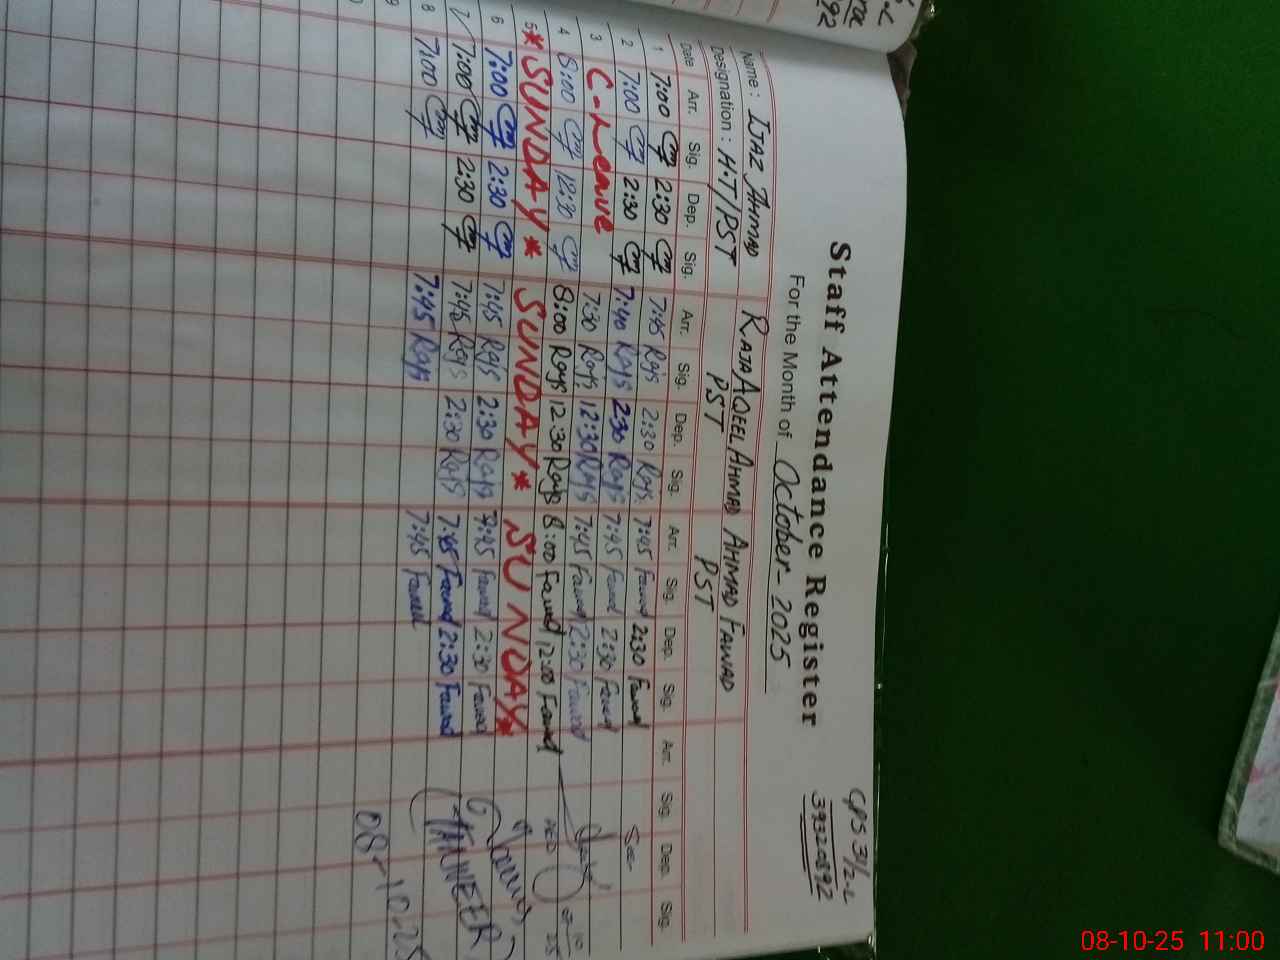 Staff Attendance Register
For the Month of October-2025
GPS 31/2-L
39320892
Name: IJAZ AHMAD RAJA AQEEL AHMAD AHMAD FAWAD
Designation: H.T/PST PST PST
Date Arr. Sig. Dep. Sig. Arr. Sig. Dep. Sig. Arr. Sig. Dep. Sig. Arr. Sig. Dep. Sig.
1 7:00 2:30 7:45 Rays 2:30 Rays 7:45 Fawad 2:30 Fawad
2 7:00 2:30 7:40 Rays 2:30 Rays 7:45 Fawad 2:30 Fawad See
3 C-Leave 7:30 Rays 12:30 Rays 7:45 Fawad 12:30 Fawad
4 8:00 12:30 8:00 Rays 12:30 Rays 8:00 Fawad 12:00 Fawad
5 * SUNDAY * SUNDAY * SUNDAY *
6 7:00 2:30 7:45 Rays 2:30 Rays 7:45 Fawad 2:30 Fawad
7 7:00 2:30 7:45 Rays 2:30 Rays 7:45 Fawad 2:30 Fawad
8 7:00 7:45 Rays 7:45 Fawad
9
(TANVEER)
08-10-25
92
08-10-25 11:00